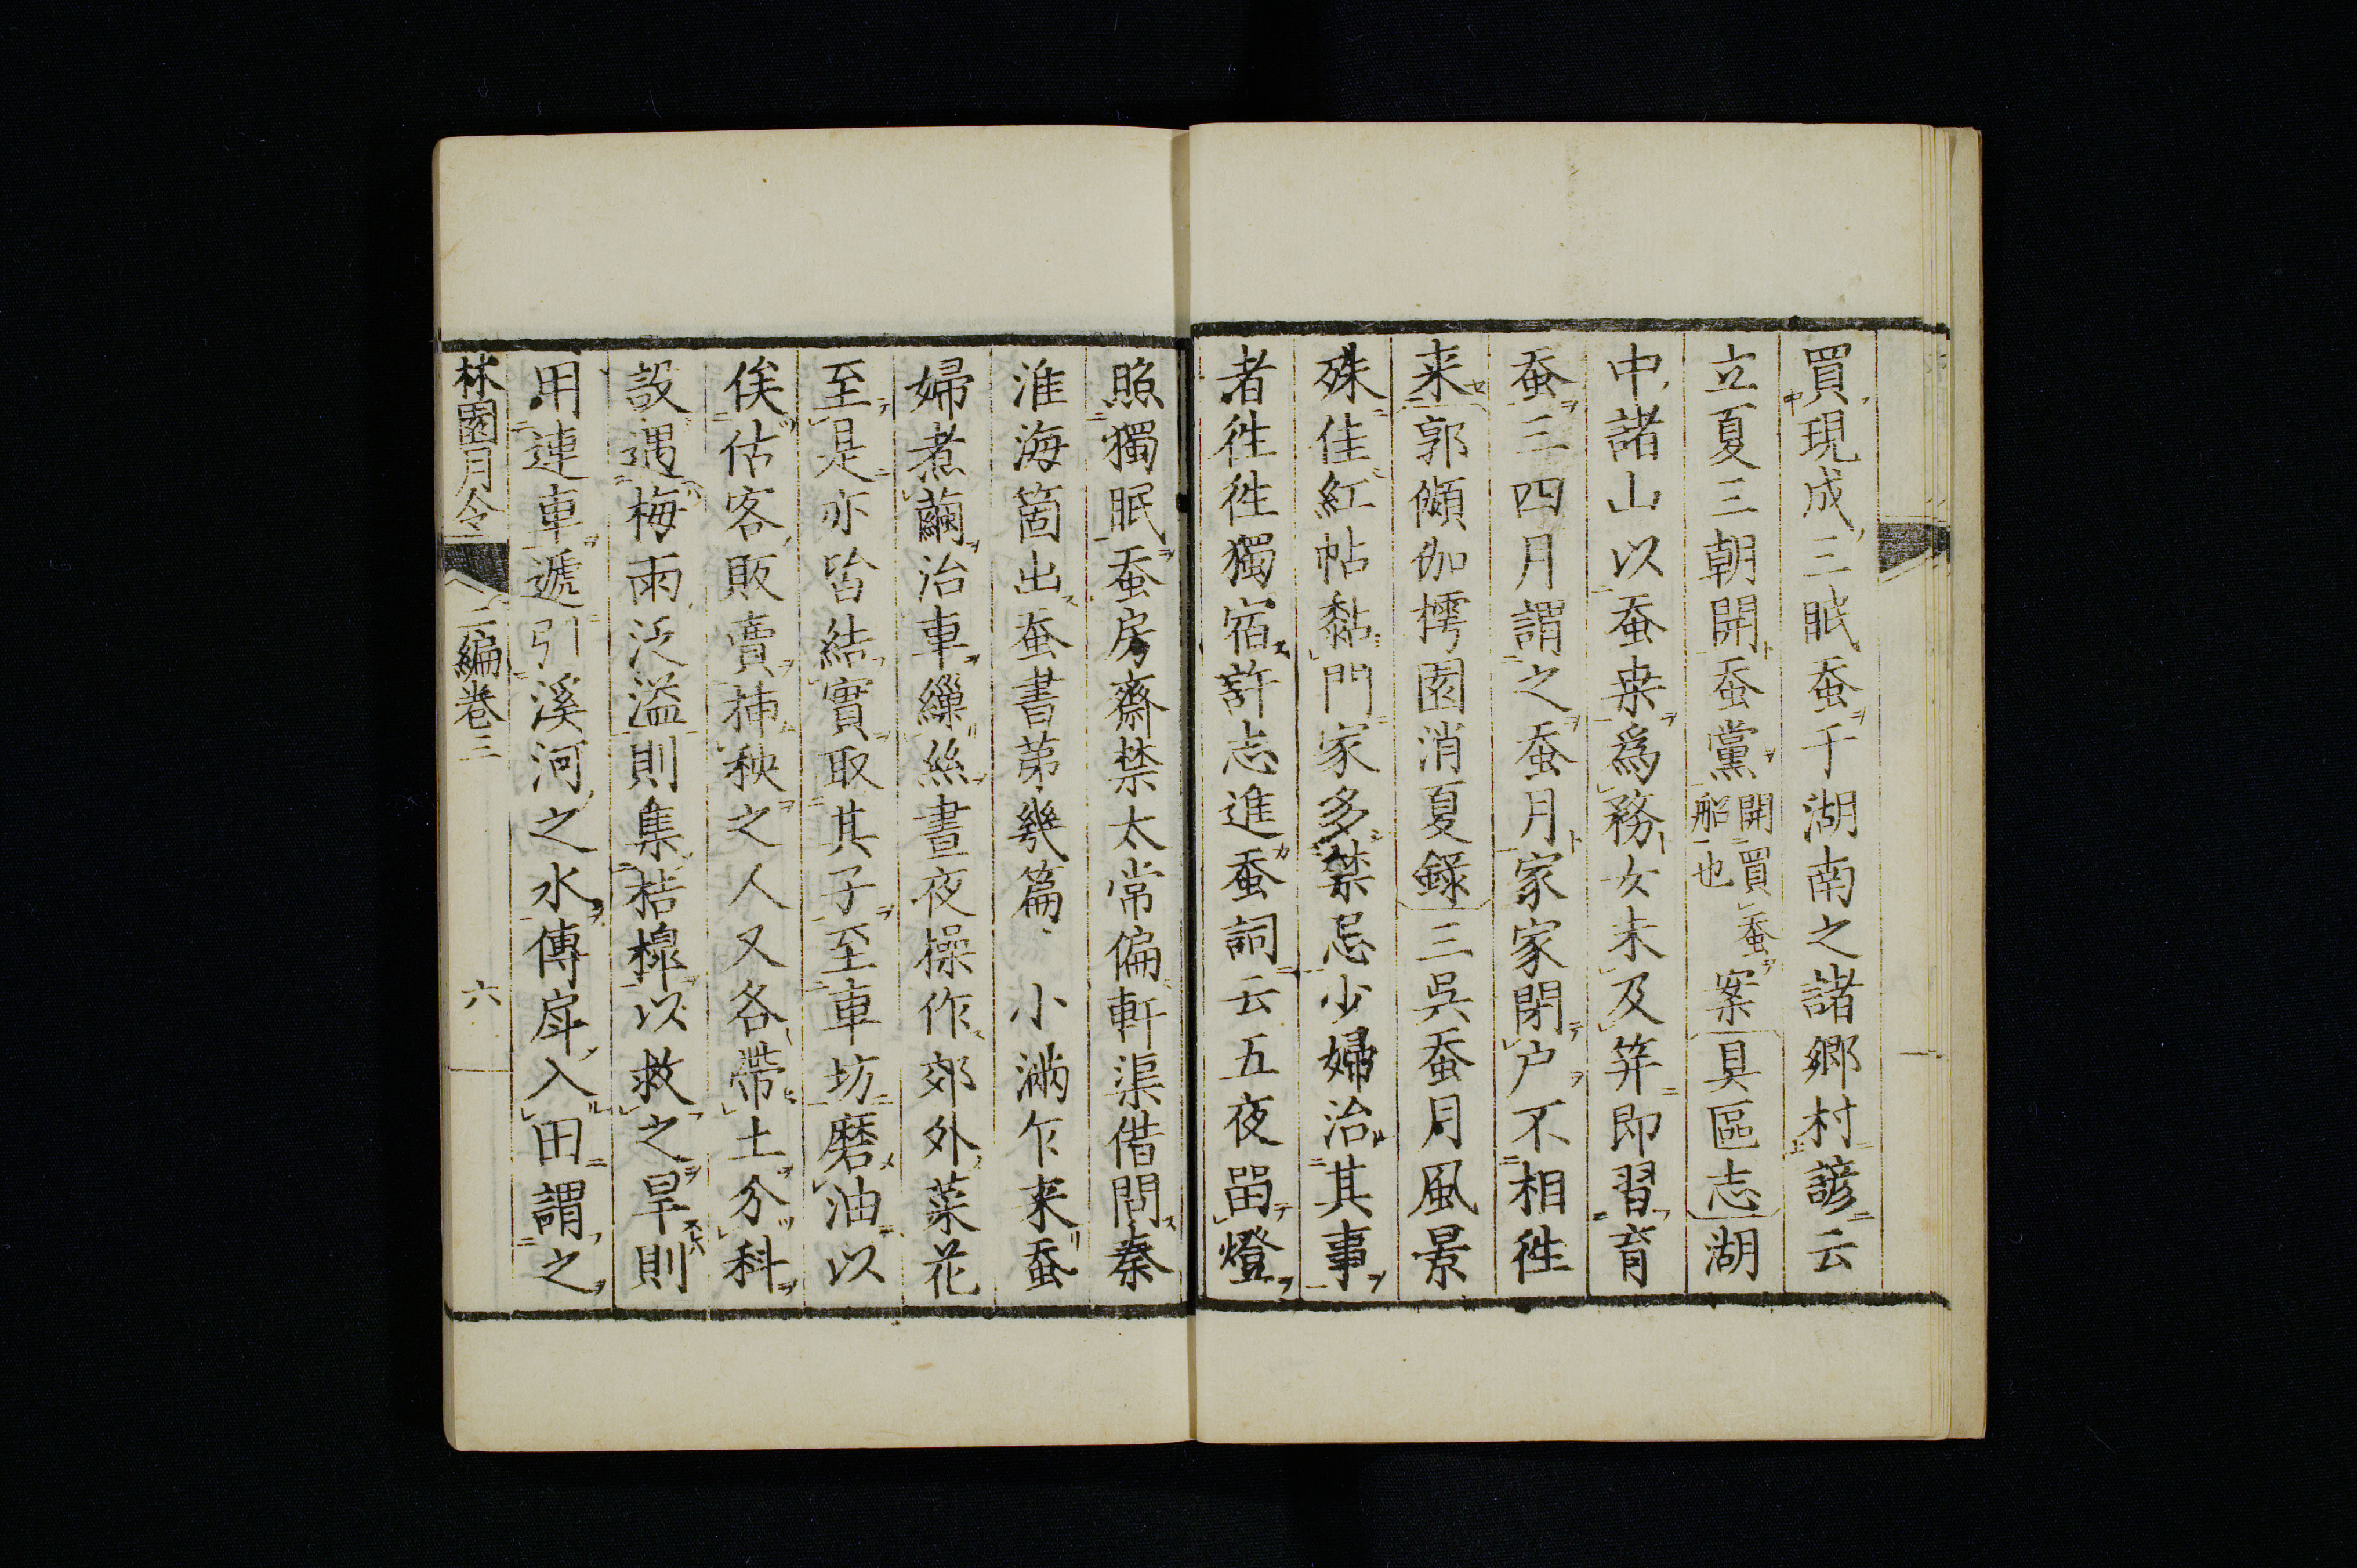 買現成三眠蚕于湖南之諸郷村諺云
立夏三朝開蚕黨開買蚕船也案具區志湖
中諸山以蚕桒爲務女未及笄即習育
蚕三四月謂之蚕月家家閉户不相徃
来郭頻伽樗園消夏錄三呉蚕月風景
殊佳紅帖黏門家多禁忌少婦治其事
者徃徃獨宿許志進蚕詞云五夜畱燈
照獨眠蚕房齋禁太常偏軒渠借問秦
淮海箇出蚕書第幾篇小滿乍来蚕
婦煮繭治車繅絲晝夜操作郊外菜花
至是亦皆結實取其子至車坊磨油以
俟估客販賣挿秧之人又各帶土分科
設遇梅雨泛溢則集桔橰以救之旱則
用連車遞引溪河之水傳戽入田謂之
林園月令 二編卷三 六